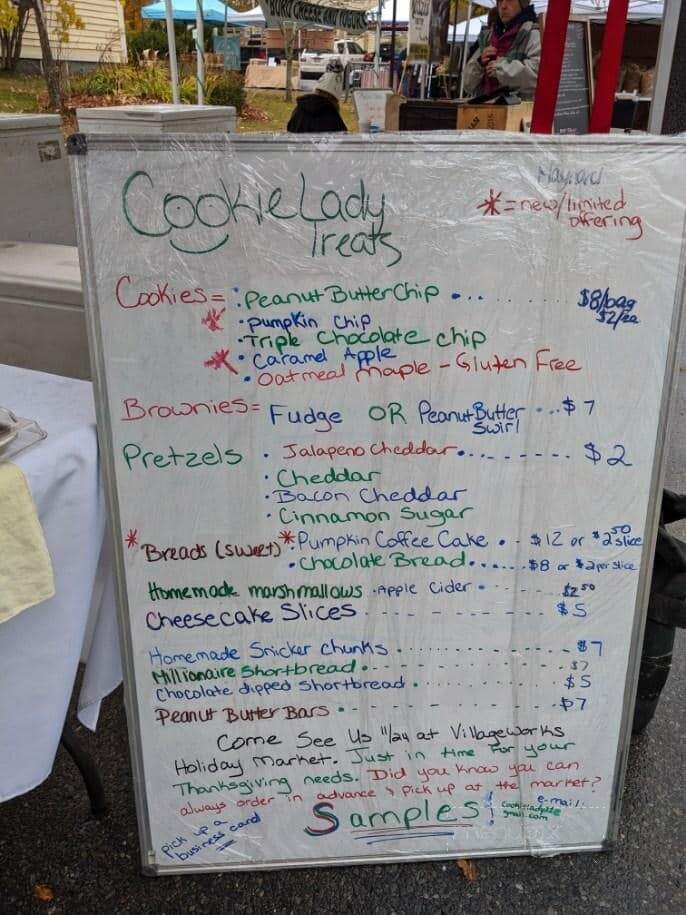 Maynard
Cookie Lady
Treats
* = new/limited
offering
Cookies = • Peanut Butter Chip • . . . . . . . . . $8/bag
$2/ea
* • Pumpkin Chip
• Triple Chocolate chip
* • Caramel Apple
• Oatmeal Maple - Gluten Free
Brownies = Fudge OR Peanut Butter ... $7
Swirl
Pretzels • Jalapeno Cheddar • - - - - - - - $2
• Cheddar
• Bacon Cheddar
• Cinnamon Sugar
* Breads (sweet) * • Pumpkin Coffee Cake • - - $12 or $2.50 slice
• Chocolate Bread • . . . . . $8 or $2 per slice
Homemade marshmallows • Apple Cider • - - - - - $2.50
Cheesecake Slices - - - - - - - - - - $5
Homemade Snicker Chunks • . . . . . . . . . . . $7
Millionaire Shortbread • - - - - - - - - - - $7
Chocolate dipped Shortbread • . . . . . . . . . $5
Peanut Butter Bars • - - - - - - - - - - $7
Come See Us 11/24 at VillageWorks
Holiday Market. Just in time for your
Thanksgiving needs. Did you know you can
always order in advance & pick up at the market?
Samples!
e-mail:
gmail.com
pick up a
business card